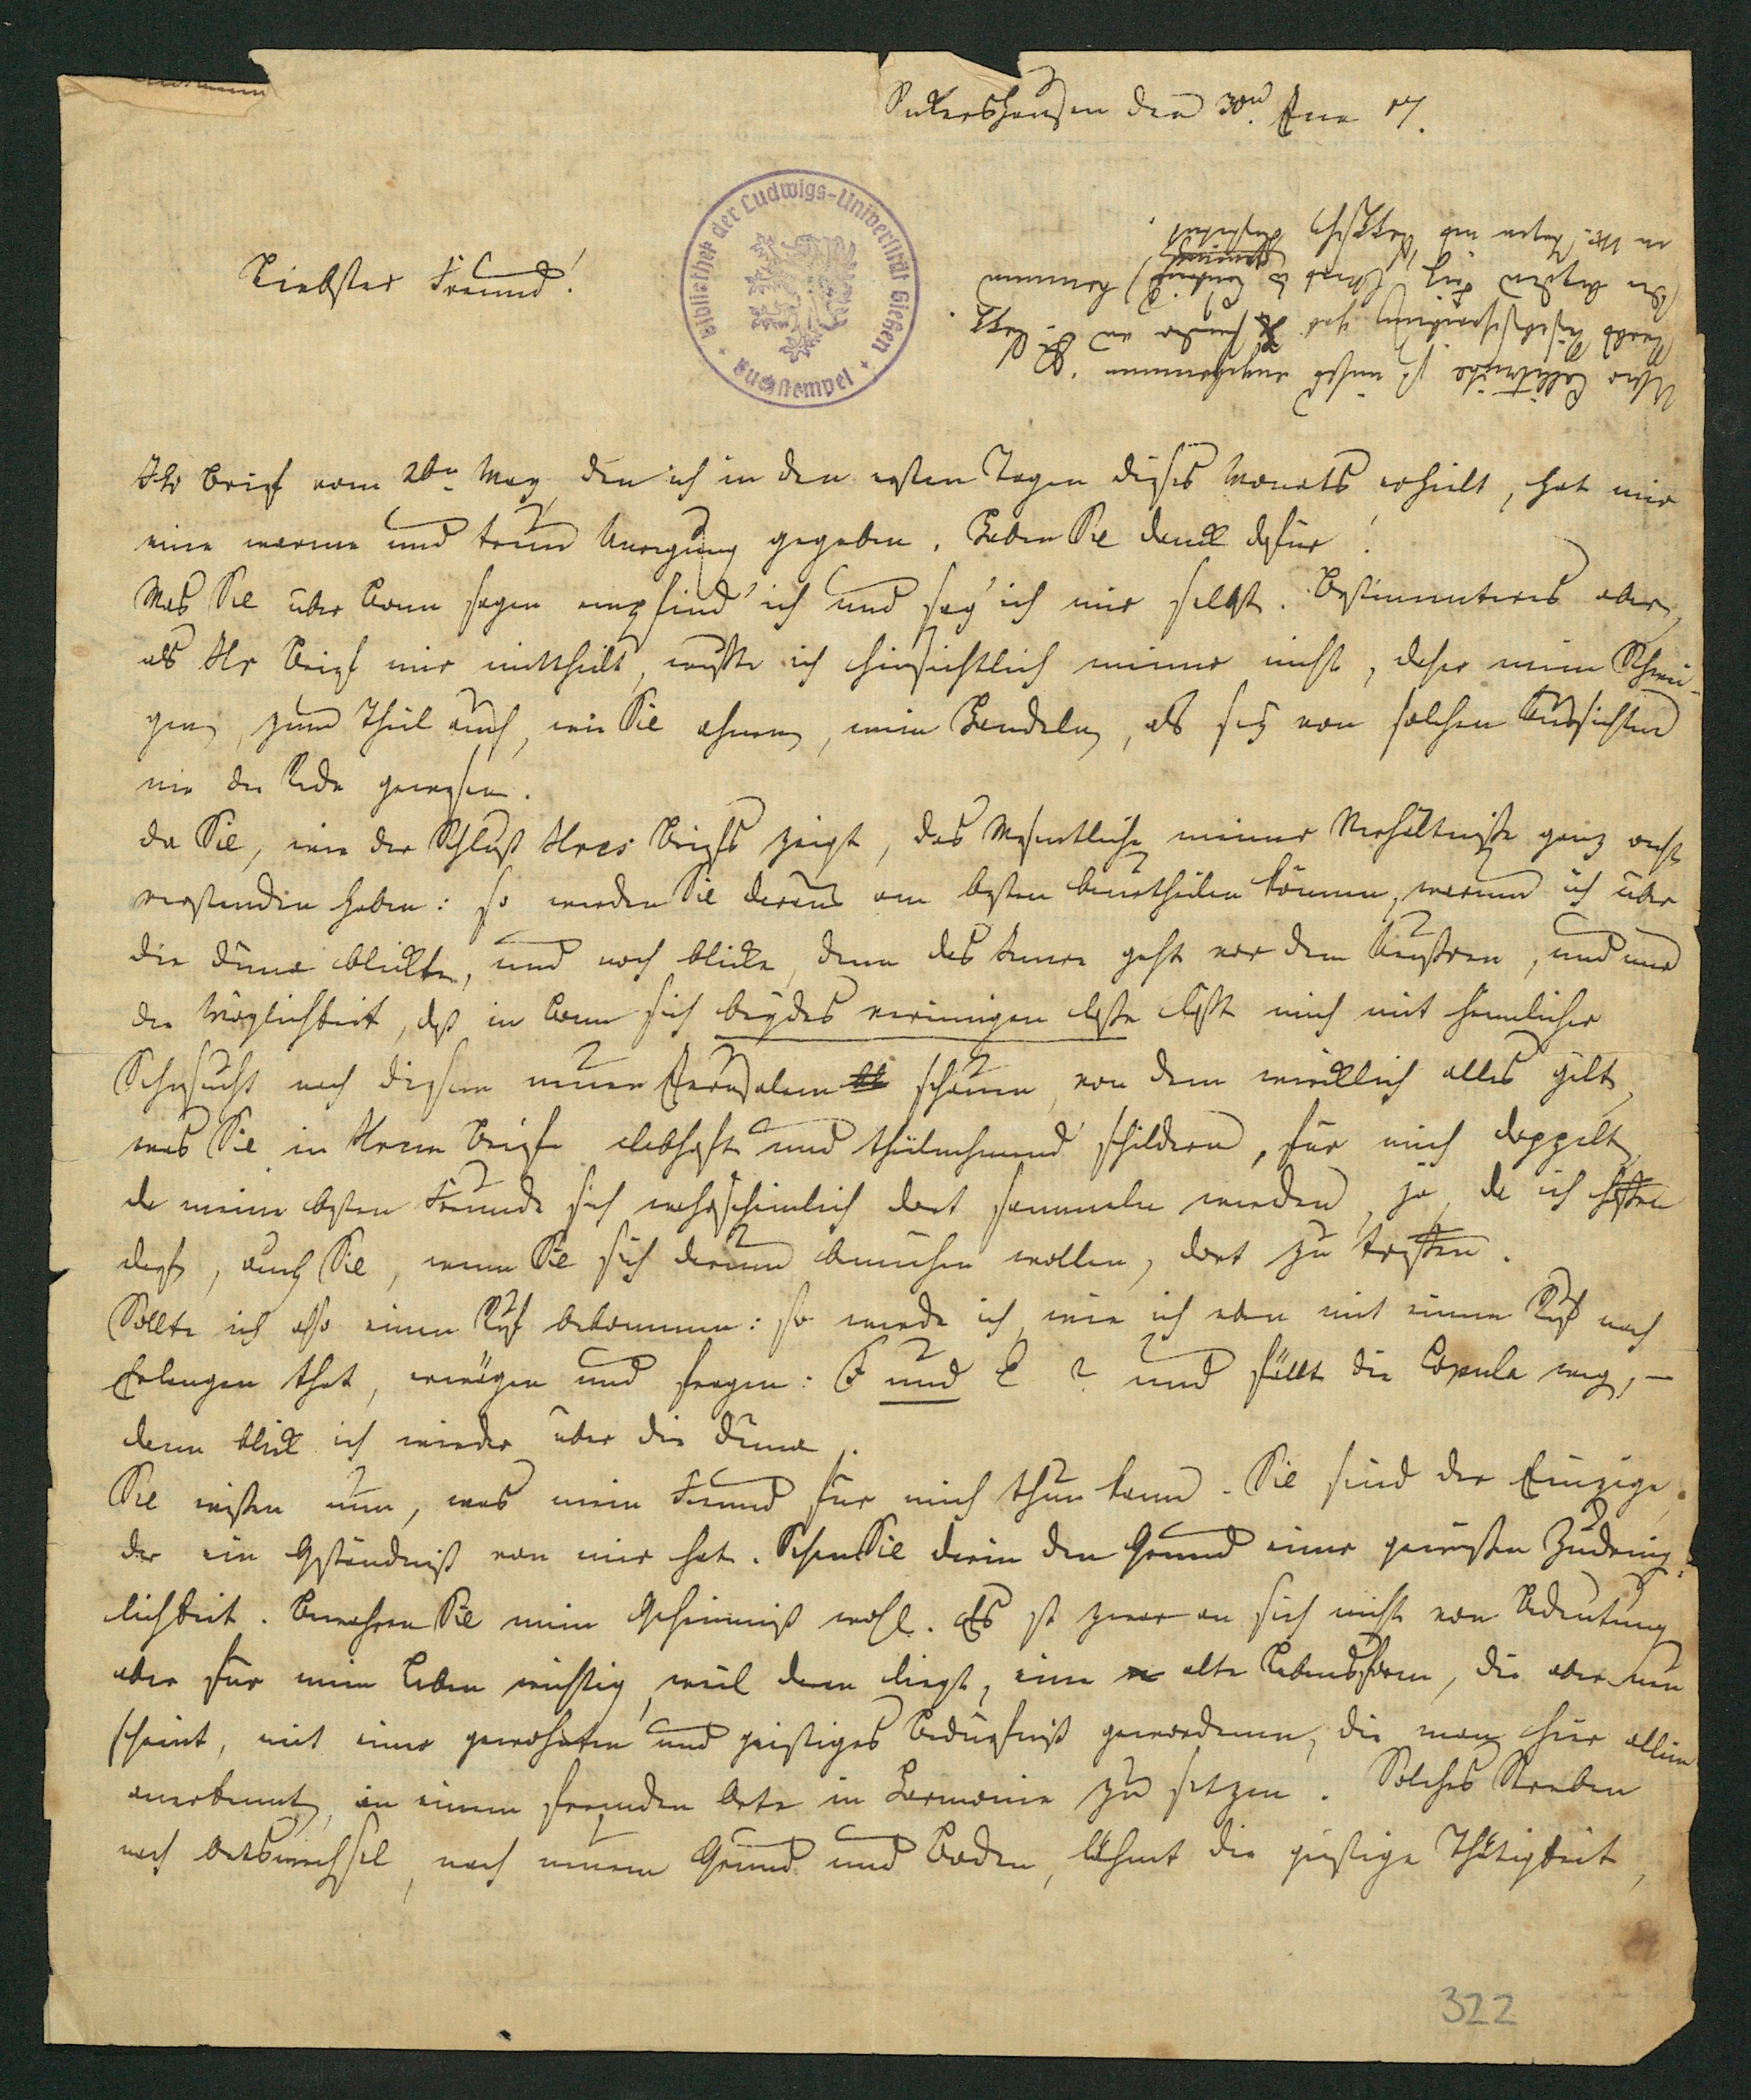 Sickershausen den 30n. Jun 17.
Liebster Freund!
Bibliothek der Ludwigs-Universität Gießen
Buchstempel
Ihr Brief vom 26n May, den ich in den ersten Tagen dieses Monats erhielt, hat mir
eine warme und treue Anregung gegeben. Haben Sie Dank dafür!
Was Sie über Bonn sagen empfind' ich und sag' ich mir selbst. Bestimmteres aber,
als Ihr Brief mir mittheilt, wußte ich hinsichtlich meiner nicht, daher mein Schwei-
gen, zum Theil auch, wie Sie ahnen, mein Handeln, als sey von solchen Aussichten
nie die Rede gewesen.
Da Sie, wie der Schluß Ihres Briefs zeigt, das Wesentliche meiner Verhältniße ganz recht
verstanden haben: so werden Sie daraus am besten beurtheilen können, warum ich über
die Düna blickte, und noch blicke, denn das Innre geht vor dem Äußren, und nur
die Möglichkeit, daß in Bonn sich beydes vereinigen laße läßt mich mit heimlicher
Sehnsucht nach diesem neuen Jerusalem schauen, von dem wirklich alles gilt,
was Sie in Ihrem Briefe lebhaft und theilnehmend schildern, für mich doppelt,
da meine besten Freunde sich wahrscheinlich dort sammeln werden, ja, da ich hoffen
darf, auch Sie, wenn Sie sich darum bemühen wollen, dort zu treffen.
Sollte ich also einen Ruf bekommen: so werde ich, wie ich eben mit einem Ruf nach
Erlangen that, erwägen und fragen: F und E? und fällt die Copula weg, —
dann blick ich wieder über die Düna.
Sie wißen nun, was mein Freund für mich thun kann. Sie sind der Einzige,
der ein Geständniß von mir hat. Sehen Sie darin den Grund einer gewißen Zudring-
lichkeit. Bewahren Sie mein Geheimniß wohl. Es ist zwar an sich nicht von Bedeutung
aber für mein Leben wichtig, weil daran liegt, eine alte Lebensform, die aber neu
scheint, mit einer gewohnten und geistiges Bedürfniß gewordenen, die man hier allein
anerkennt, an einem fremden Orte in Harmonie zu setzen. Solches Streben
nach Ortswechsel, nach neuem Grund und Boden, lähmt die geistige Thätigkeit,
322